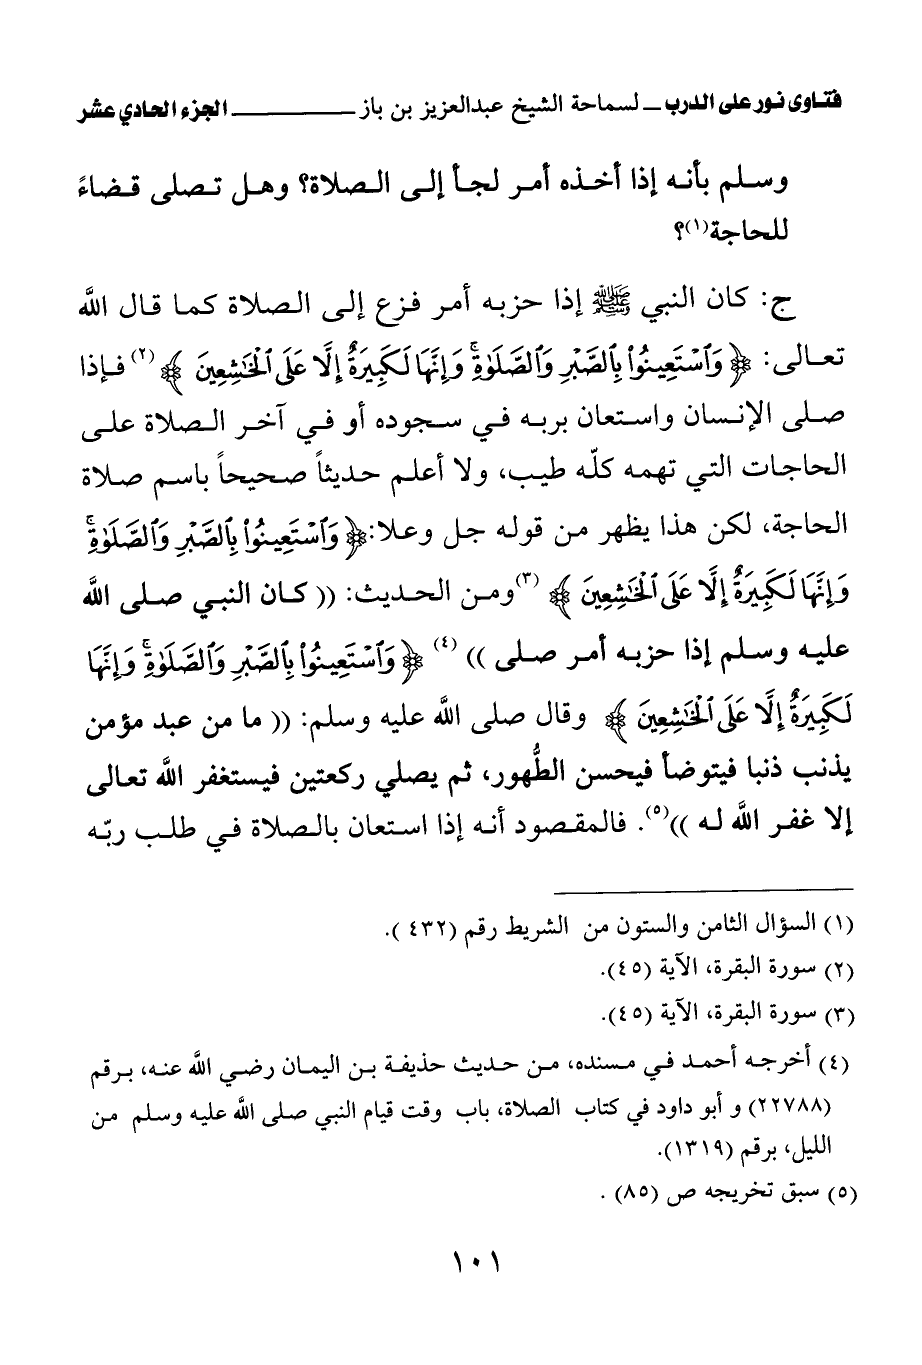 فتاوى نور على الدرب ــ لسماحة الشيخ عبدالعزيز بن باز ــــــــــــــ الجزء الحادي عشر
وسلم بأنه إذا أخذه أمر لجأ إلى الصلاة؟ وهل تصلى قضاءً
للحاجة(١)؟
ج: كان النبي ﷺ إذا حزبه أمر فزع إلى الصلاة كما قال الله
تعالى: ﴿ وَٱسْتَعِينُوا۟ بِٱلصَّبْرِ وَٱلصَّلَوٰةِ ۚ وَإِنَّهَا لَكَبِيرَةٌ إِلَّا عَلَى ٱلْخَـٰشِعِينَ ﴾ (٢) فإذا
صلى الإنسان واستعان بربه في سجوده أو في آخر الصلاة على
الحاجات التي تهمه كلّه طيب، ولا أعلم حديثاً صحيحاً باسم صلاة
الحاجة، لكن هذا يظهر من قوله جل وعلا: ﴿ وَٱسْتَعِينُوا۟ بِٱلصَّبْرِ وَٱلصَّلَوٰةِ ۚ
وَإِنَّهَا لَكَبِيرَةٌ إِلَّا عَلَى ٱلْخَـٰشِعِينَ ﴾ (٣) ومن الحديث: (( كان النبي صلى الله
عليه وسلم إذا حزبه أمر صلى )) (٤) ﴿ وَٱسْتَعِينُوا۟ بِٱلصَّبْرِ وَٱلصَّلَوٰةِ ۚ وَإِنَّهَا
لَكَبِيرَةٌ إِلَّا عَلَى ٱلْخَـٰشِعِينَ ﴾ وقال صلى الله عليه وسلم: (( ما من عبد مؤمن
يذنب ذنبا فيتوضأ فيحسن الطُّهور، ثم يصلي ركعتين فيستغفر الله تعالى
إلا غفر الله له ))(٥). فالمقصود أنه إذا استعان بالصلاة في طلب ربّه
(١) السؤال الثامن والستون من الشريط رقم (٤٣٢ ).
(٢) سورة البقرة، الآية (٤٥).
(٣) سورة البقرة، الآية (٤٥).
(٤) أخرجه أحمد في مسنده، من حديث حذيفة بن اليمان رضي الله عنه، برقم
(٢٢٧٨٨) و أبو داود في كتاب الصلاة، باب وقت قيام النبي صلى الله عليه وسلم من
الليل، برقم (١٣١٩).
(٥) سبق تخريجه ص (٨٥) .
١٠١